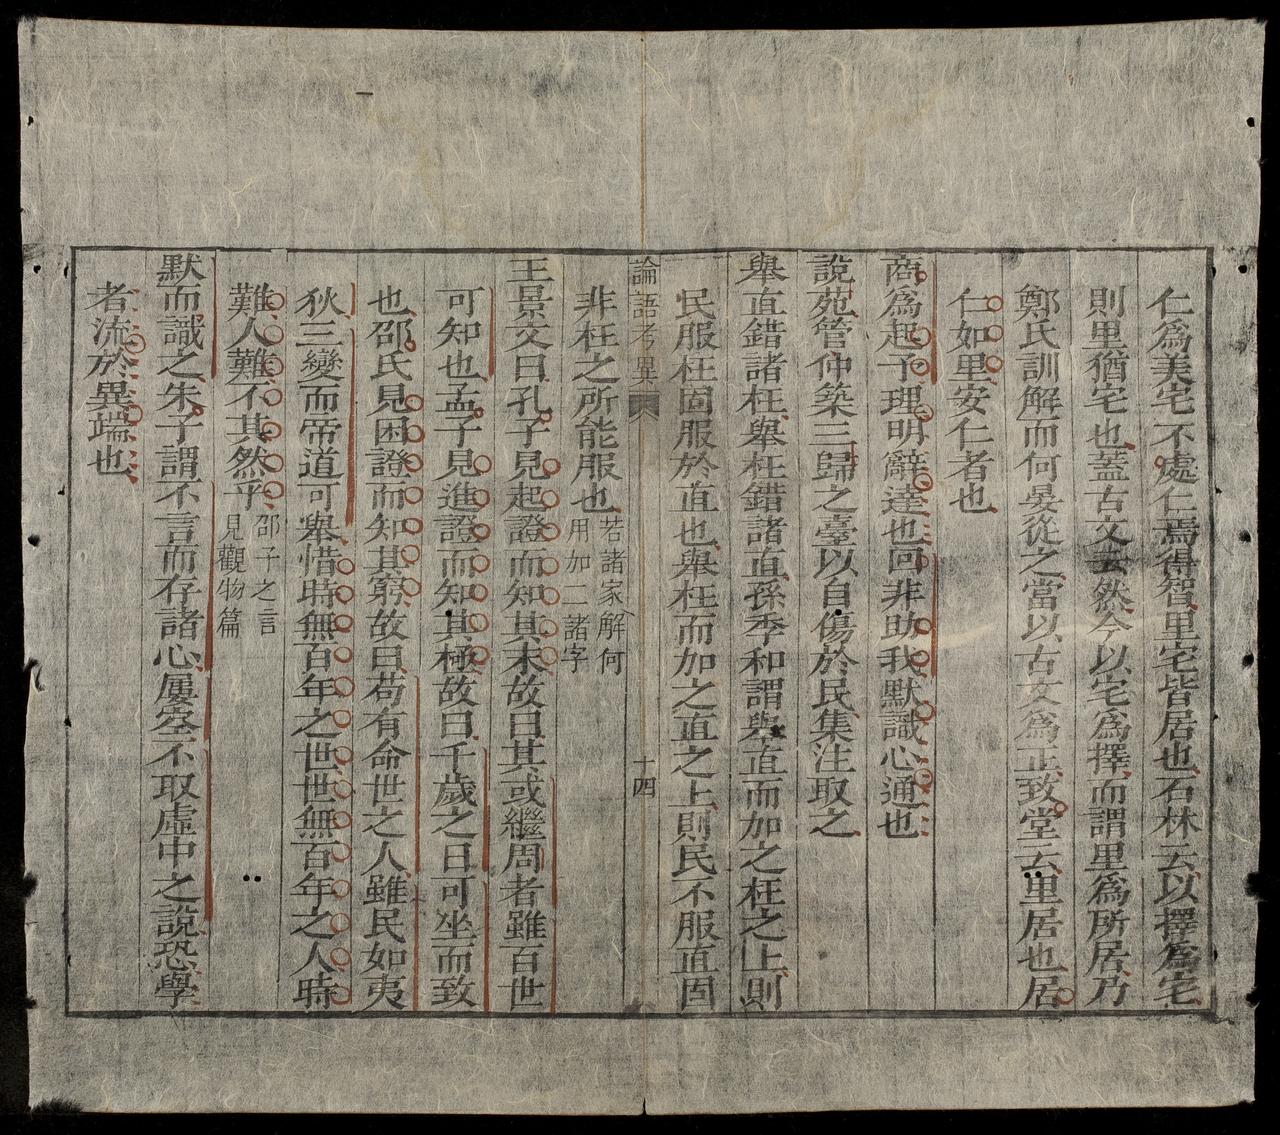 仁爲美宅不處仁焉得智里宅皆居也石林云以擇爲宅
則里猶宅也蓋古文云然今以宅爲擇而謂里爲所居乃
鄭氏訓解而何晏從之當以古文爲正致堂云里居也居
仁如里安仁者也
商爲起予理明辭達也回非助我默識心通也
說苑管仲築三歸之臺以自傷於民集注取之
舉直錯諸枉舉枉錯諸直孫季和謂舉直而加之枉之上則
民服枉固服於直也舉枉而加之直之上則民不服直固
論語考異
十四
非枉之所能服也若諸家解何
用加二諸字
王景文曰孔子見起證而知其末故曰其或繼周者雖百世
可知也孟子見進證而知其極故曰千歲之日可坐而致
也邵氏見困證而知其窮故曰苟有命世之人雖民如夷
狄三變而帝道可舉惜時無百年之世世無百年之人時
難人難不其然乎邵子之言
見觀物篇
默而識之朱子謂不言而存諸心屢空不取虛中之說恐學
者流於異端也